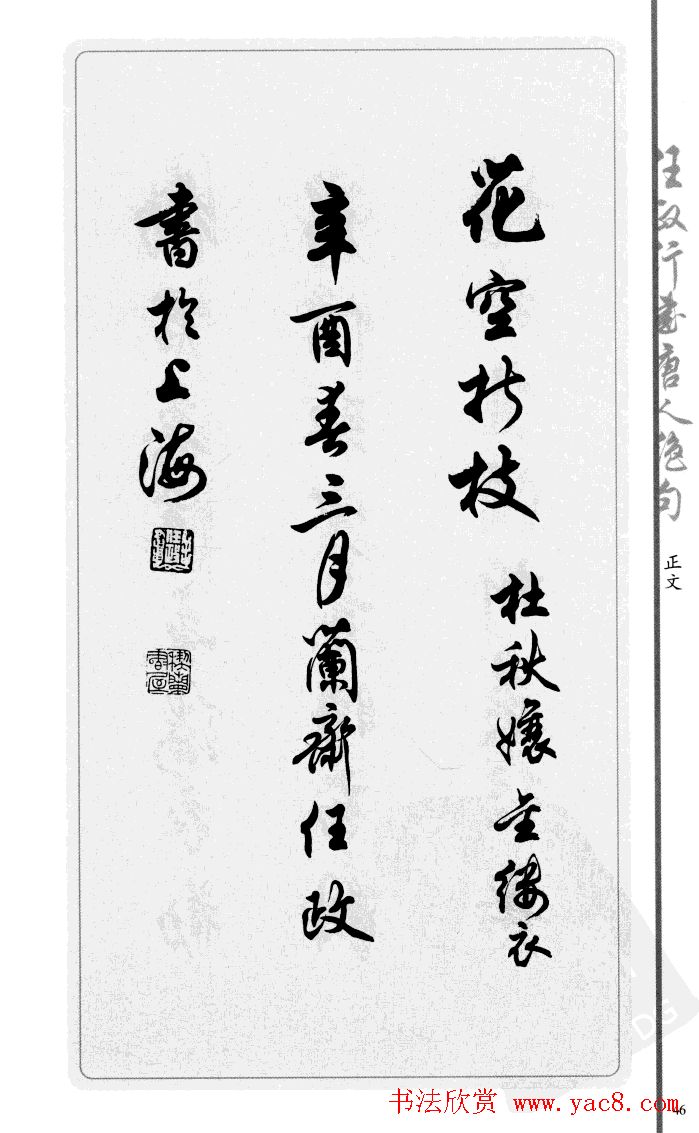 花空折枝 杜秋孃金縷衣
辛酉春三月蘭齋任政
書於上海
任政行書唐人绝句
正文
书法欣赏 www.yac8.com
46